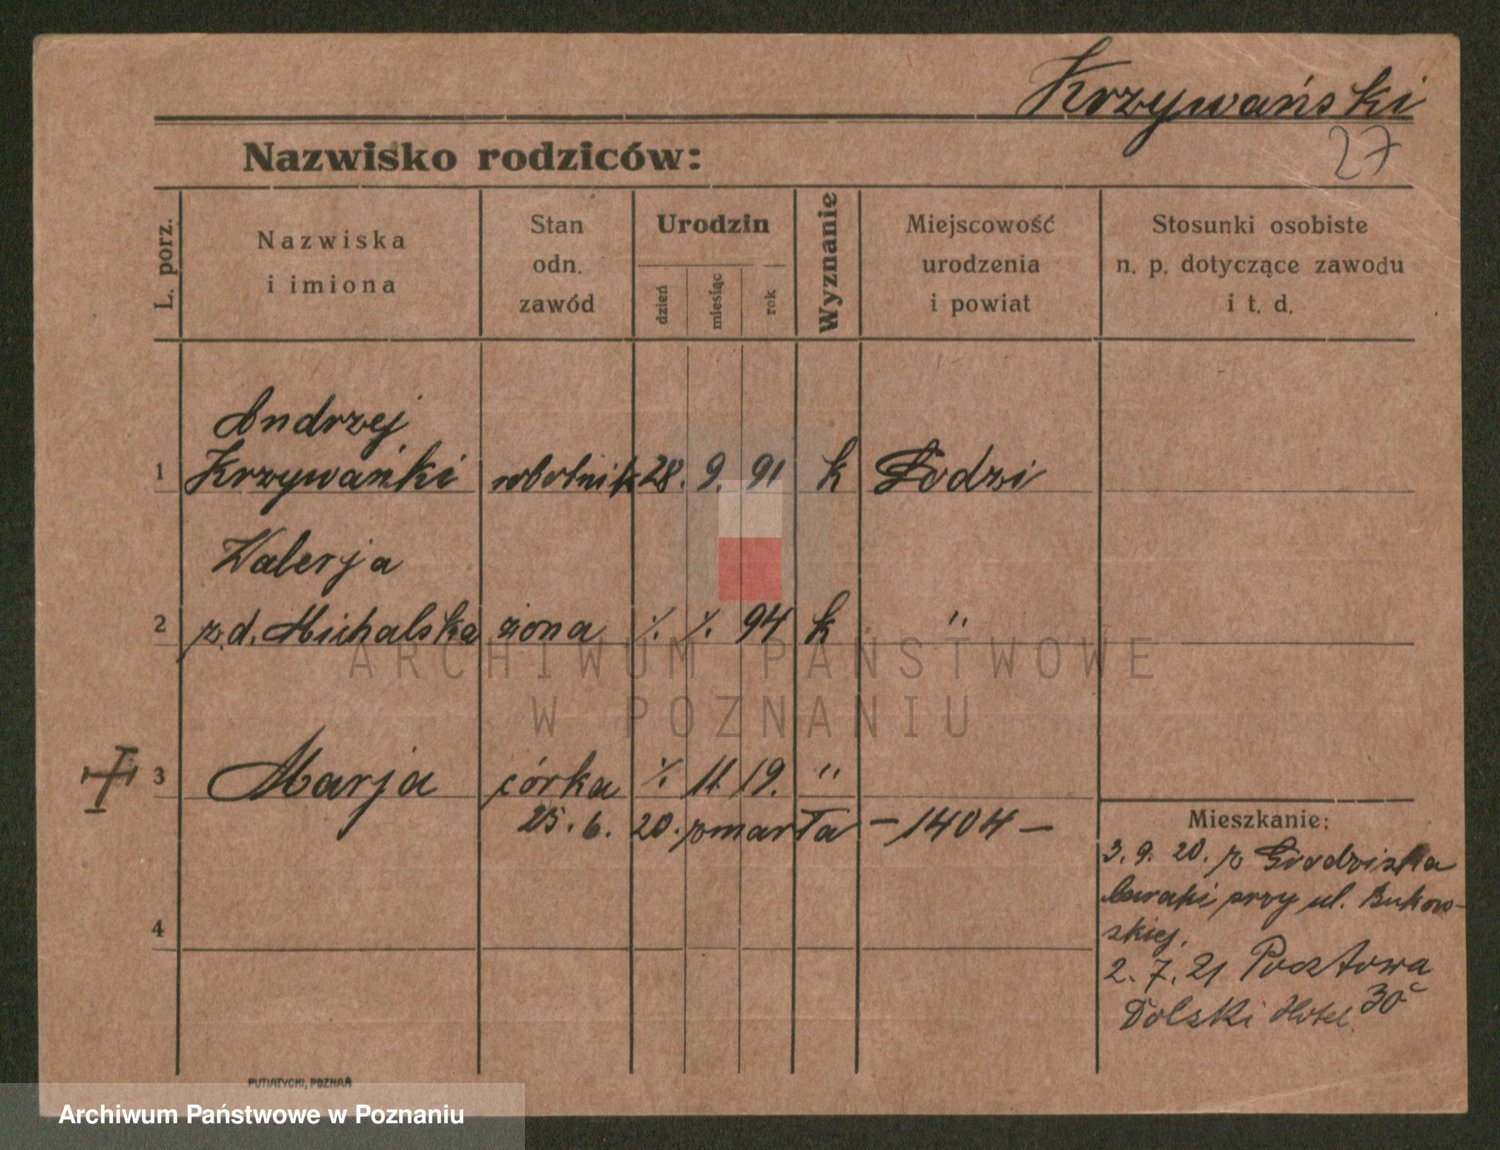 Krzywański
27
Nazwisko rodziców:
L. porz.
Nazwiska
i imiona
Stan
odn.
zawód
Urodzin
dzień
miesiąc
rok
Wyznanie
Miejscowość
urodzenia
i powiat
Stosunki osobiste
n. p. dotyczące zawodu
i t. d.
Andrzej
1 Krzywański robotnik 28. 9. 91 k Łodzi
Walerja
2 z d. Michalska żona /. /. 94 k "
3 Marja córka /. 11. 19. "
25. 6. 20. zmarła – 1404 –
4
Mieszkanie:
3. 9. 20. z Grodziska
baraki przy ul. Bukow-
skiej.
2. 7. 21 Pocztowa
30
Polski Hotel.
ARCHIWUM PAŃSTWOWE
W POZNANIU
PUTIATYCKI, POZNAŃ
Archiwum Państwowe w Poznaniu